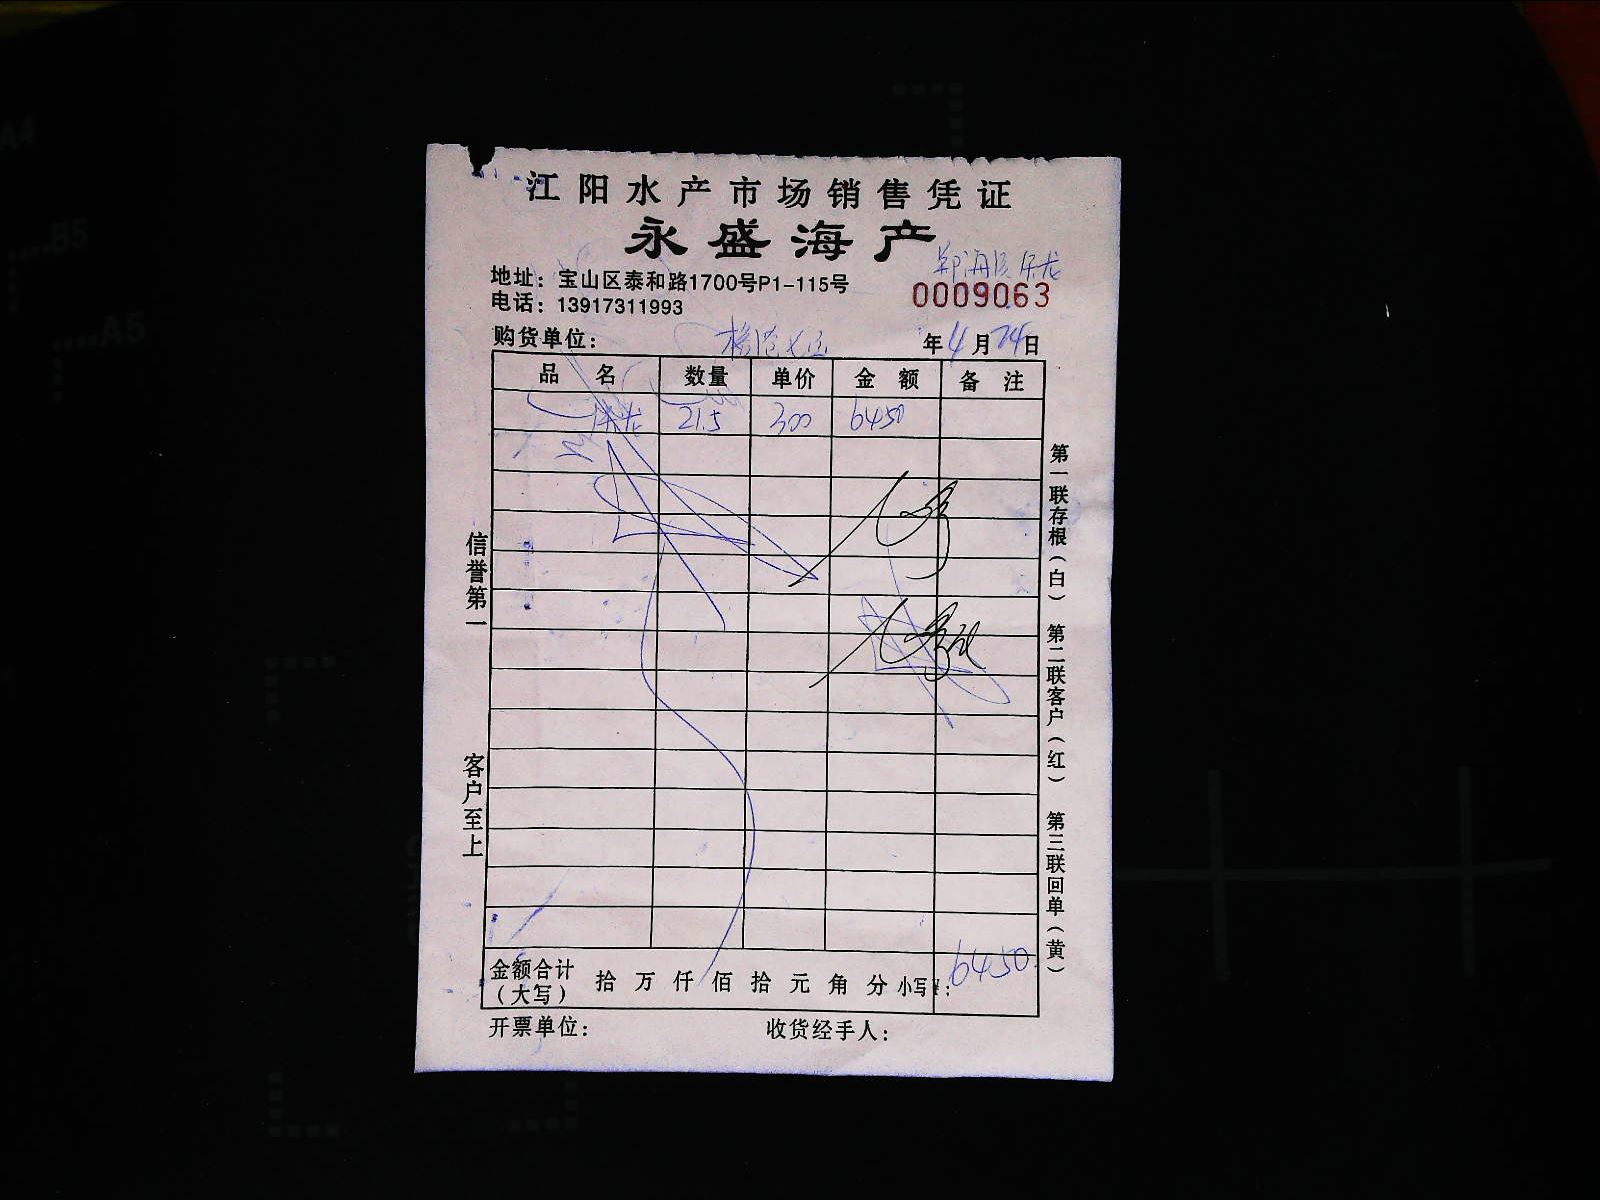 江阳水产市场销售凭证
永盛海产
地址：宝山区泰和路1700号P1-115号
0009063
电话：13917311993
购货单位：
年4月24日
品 名 数量 单价 金 额 备 注
龙 21.5 300 6450
信誉第一
客户至上
第一联存根（白） 第二联客户（红） 第三联回单（黄）
金额合计（大写） 拾 万 仟 佰 拾 元 角 分 小写¥：6450
开票单位： 收货经手人：